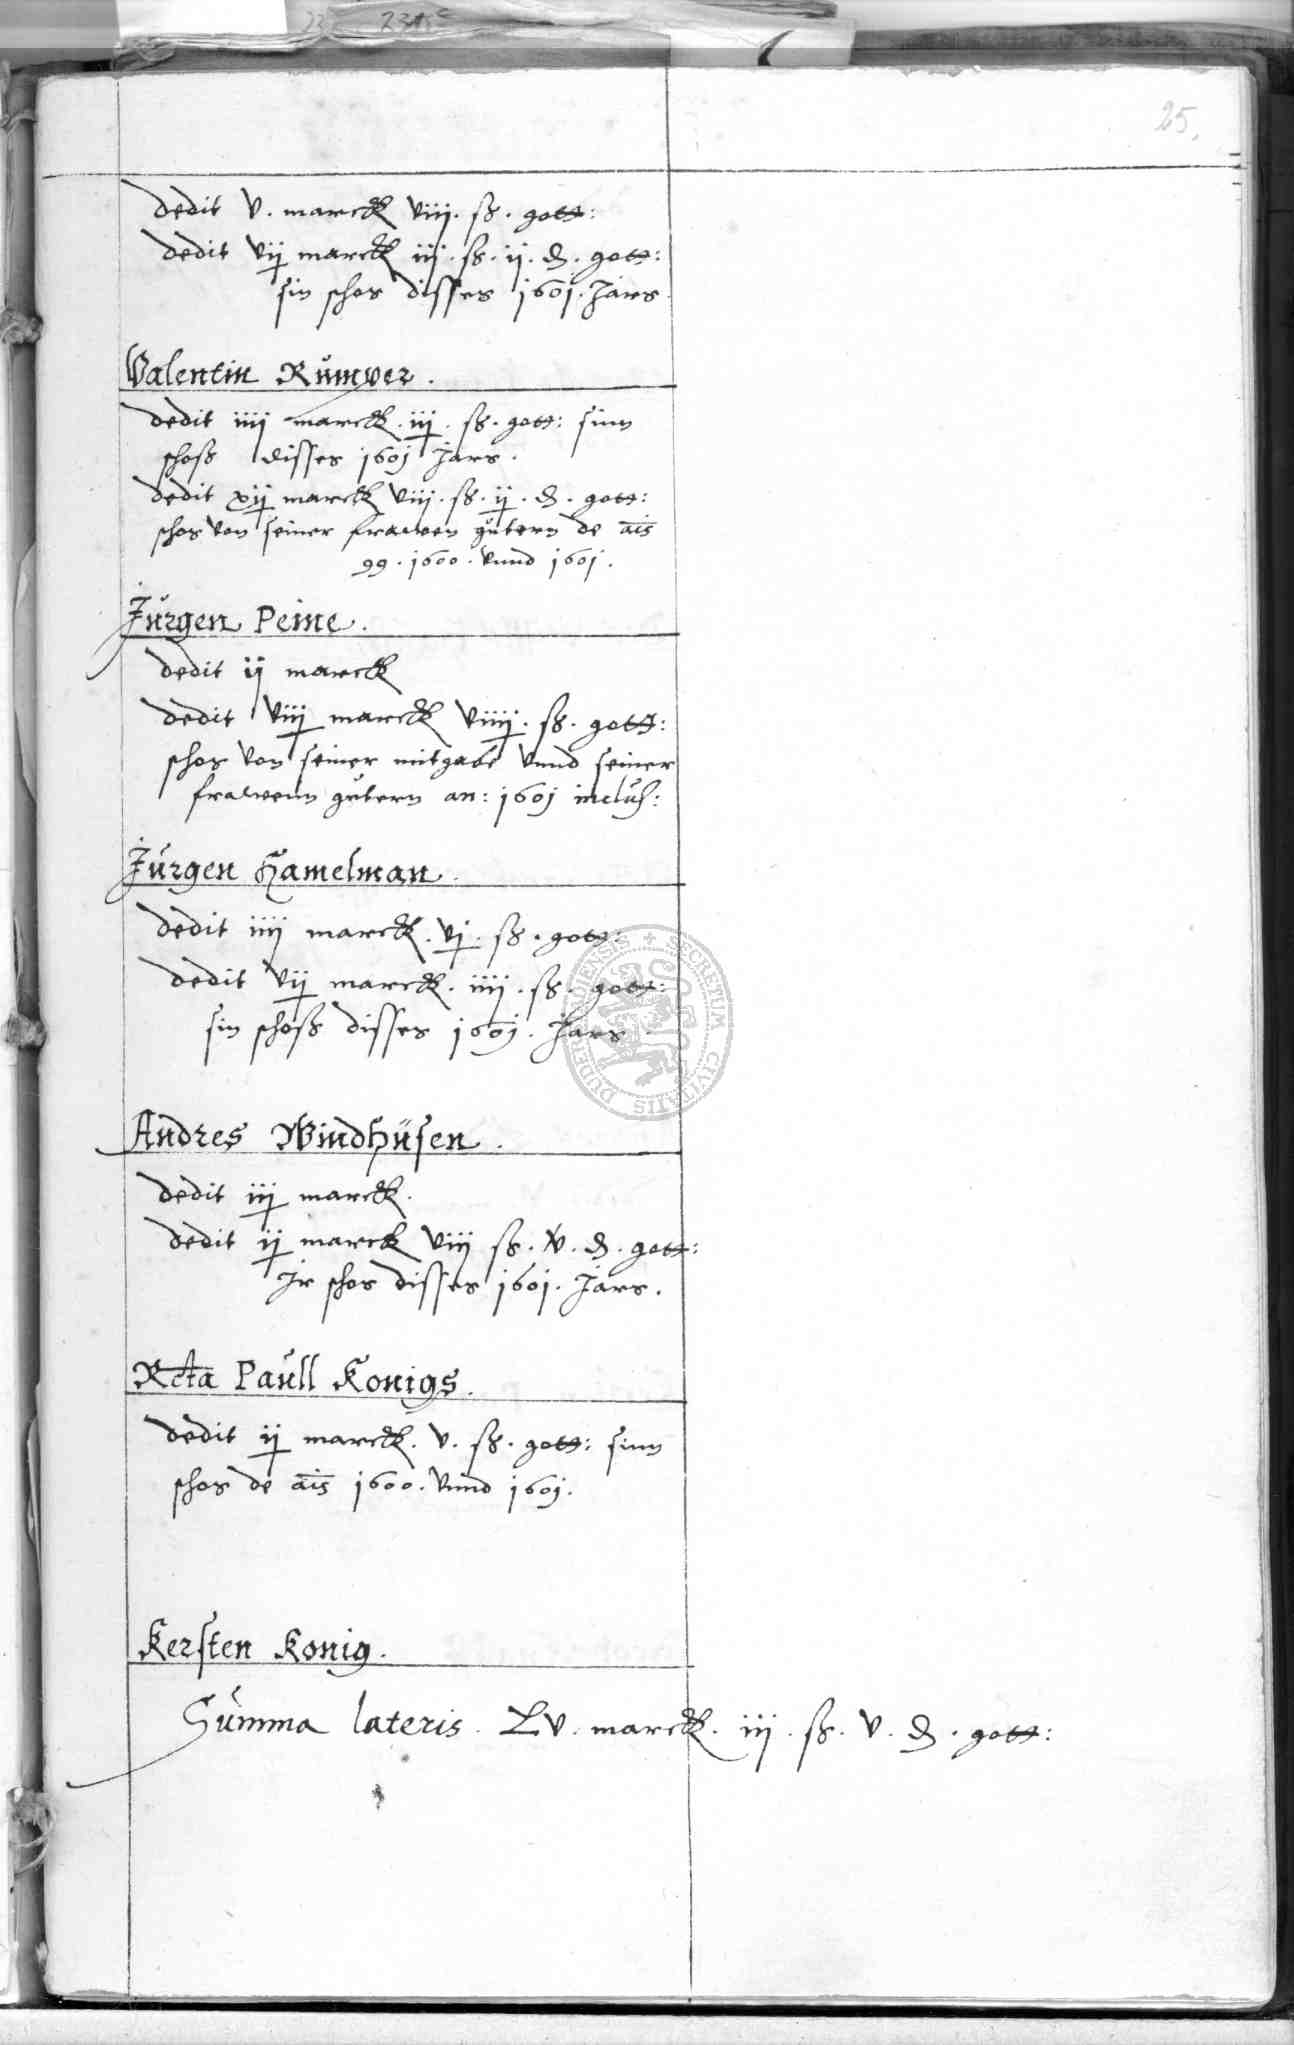 25.
dedit v. marck viij. ß. gott:
dedit vij marck iij. ß. ij. ₰. gott:
sin schos disses 1601. Jars
Valentin Rümver.
dedit iiij marck. iij. ß. gott: sinn
schoß disses 1601 Jars.
dedit xij marck viij. ß. ij. ₰. gott:
schos von seiner frawen gütern de ais
99. 1600. vnnd 1601.
Jürgen Peine.
dedit ij marck
dedit viij marck viiij. ß. gott:
schos von seiner mitgabe vnnd seiner
frawenn gutern an: 1601 inclus:
Jürgen Hamelman.
dedit iiij marck. vj. ß. gott:
dedit vij marck. iiij. ß. gott:
sin schoß disses 1601. Jars.
SECRETUM CIVITATIS DUDERSTADIENSIS
Andres Windhüsen.
dedit iij marck.
dedit ij marck viij ß. v. ₰. gott:
Jr schos disses 1601. Jars.
Rcta Paüll Konigs.
dedit ij marck. v. ß. gott: sinn
schos de ais 1600. vnnd 1601.
Kersten Konig.
Sümma lateris. Lv. marck. iij. ß. v. ₰. gott: